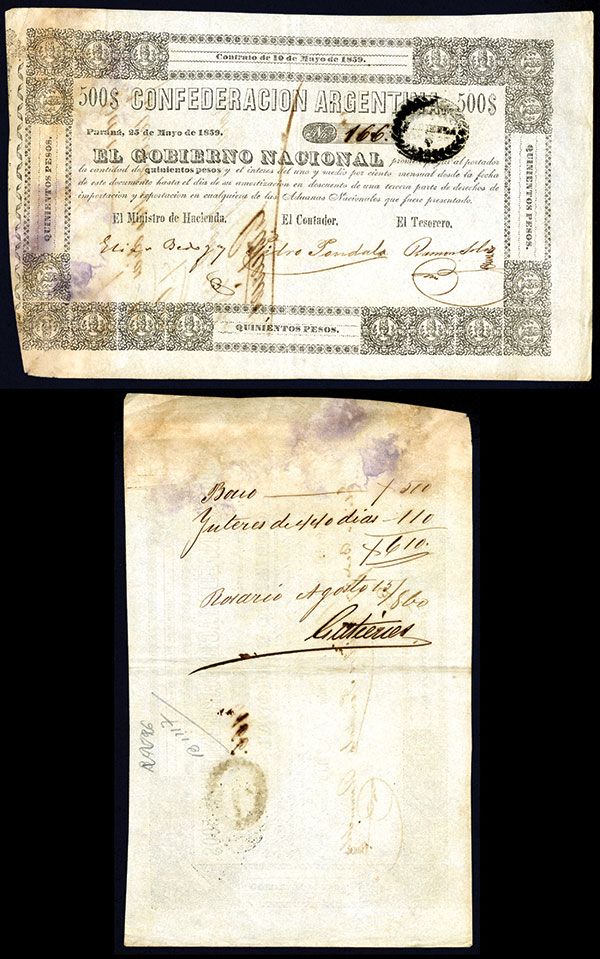 Contrato de 10 de Mayo de 1859.
500$ CONFEDERACION ARGENTINA 500$
Paraná, 25 de Mayo de 1859.
A 166
EL GOBIERNO NACIONAL al portador
la cantidad de quinientos pesos y el interes del uno y medio por ciento mensual desde la fecha
de este documento hasta el dia de su amortizacion en descuento de una tercera parte de derechos de
importacion y esportacion en cualquiera de las Aduanas Nacionales que fuere presentado.
El Ministro de Hacienda. El Contador. El Tesorero.
Pedro Pondal
QUINIENTOS PESOS.
QUINIENTOS PESOS.
QUINIENTOS PESOS.
Bono 500
Interes de 440 dias 110
610.
Rosario Agosto 13/860
Gutierrez